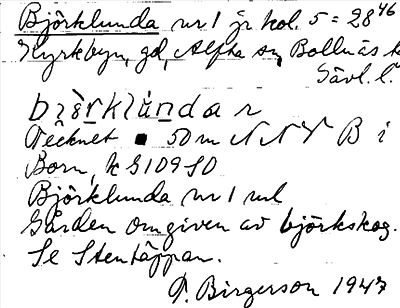 Björklunda nr 1 jr kol. 5 = 28⁴⁶
Kyrkbyn, gd, Alfta sn, Bollnäs
Gävl. l.
bjö̀rklúnda r
Tecknet ■ 50 m NNV B i
Born, k G 109 SO
Björklunda nr 1 ml
Gården omgiven av björkskog.
Se Stentäppan.
P. Birgerson 1947